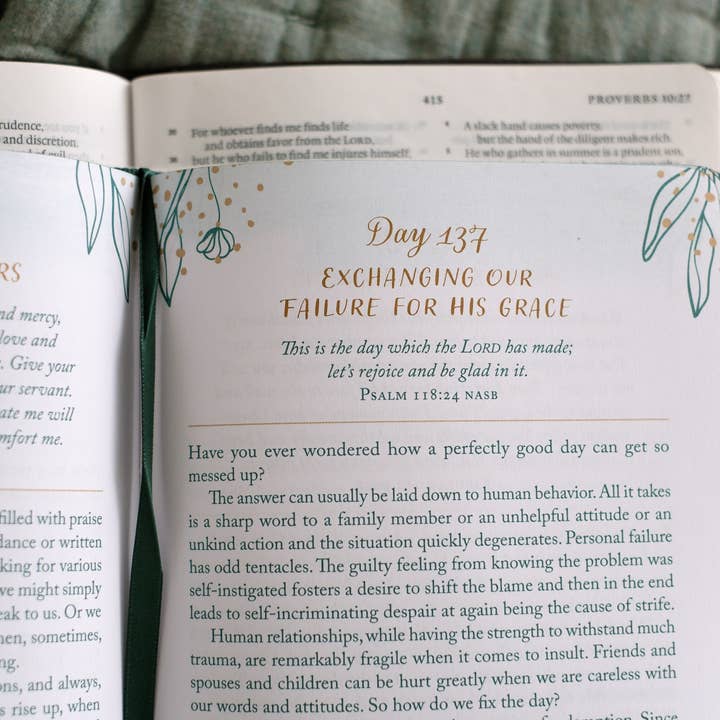 rudence,
and discretion.
415
PROVERBS 10:27
35 For whoever finds me finds life
and obtains favor from the LORD,
36 but he who fails to find me injures himself.
4 A slack hand causes poverty,
but the hand of the diligent makes rich.
5 He who gathers in summer is a prudent son,
RS
nd mercy,
love and
. Give your
ur servant.
ate me will
mfort me.
filled with praise
dance or written
king for various
we might simply
eak to us. Or we
hen, sometimes,
ng.
ons, and always,
s rise up, when
Day 137
EXCHANGING OUR
FAILURE FOR HIS GRACE
This is the day which the LORD has made;
let's rejoice and be glad in it.
PSALM 118:24 NASB
Have you ever wondered how a perfectly good day can get so
messed up?
The answer can usually be laid down to human behavior. All it takes
is a sharp word to a family member or an unhelpful attitude or an
unkind action and the situation quickly degenerates. Personal failure
has odd tentacles. The guilty feeling from knowing the problem was
self-instigated fosters a desire to shift the blame and then in the end
leads to self-incriminating despair at again being the cause of strife.
Human relationships, while having the strength to withstand much
trauma, are remarkably fragile when it comes to insult. Friends and
spouses and children can be hurt greatly when we are careless with
our words and attitudes. So how do we fix the day?
Since